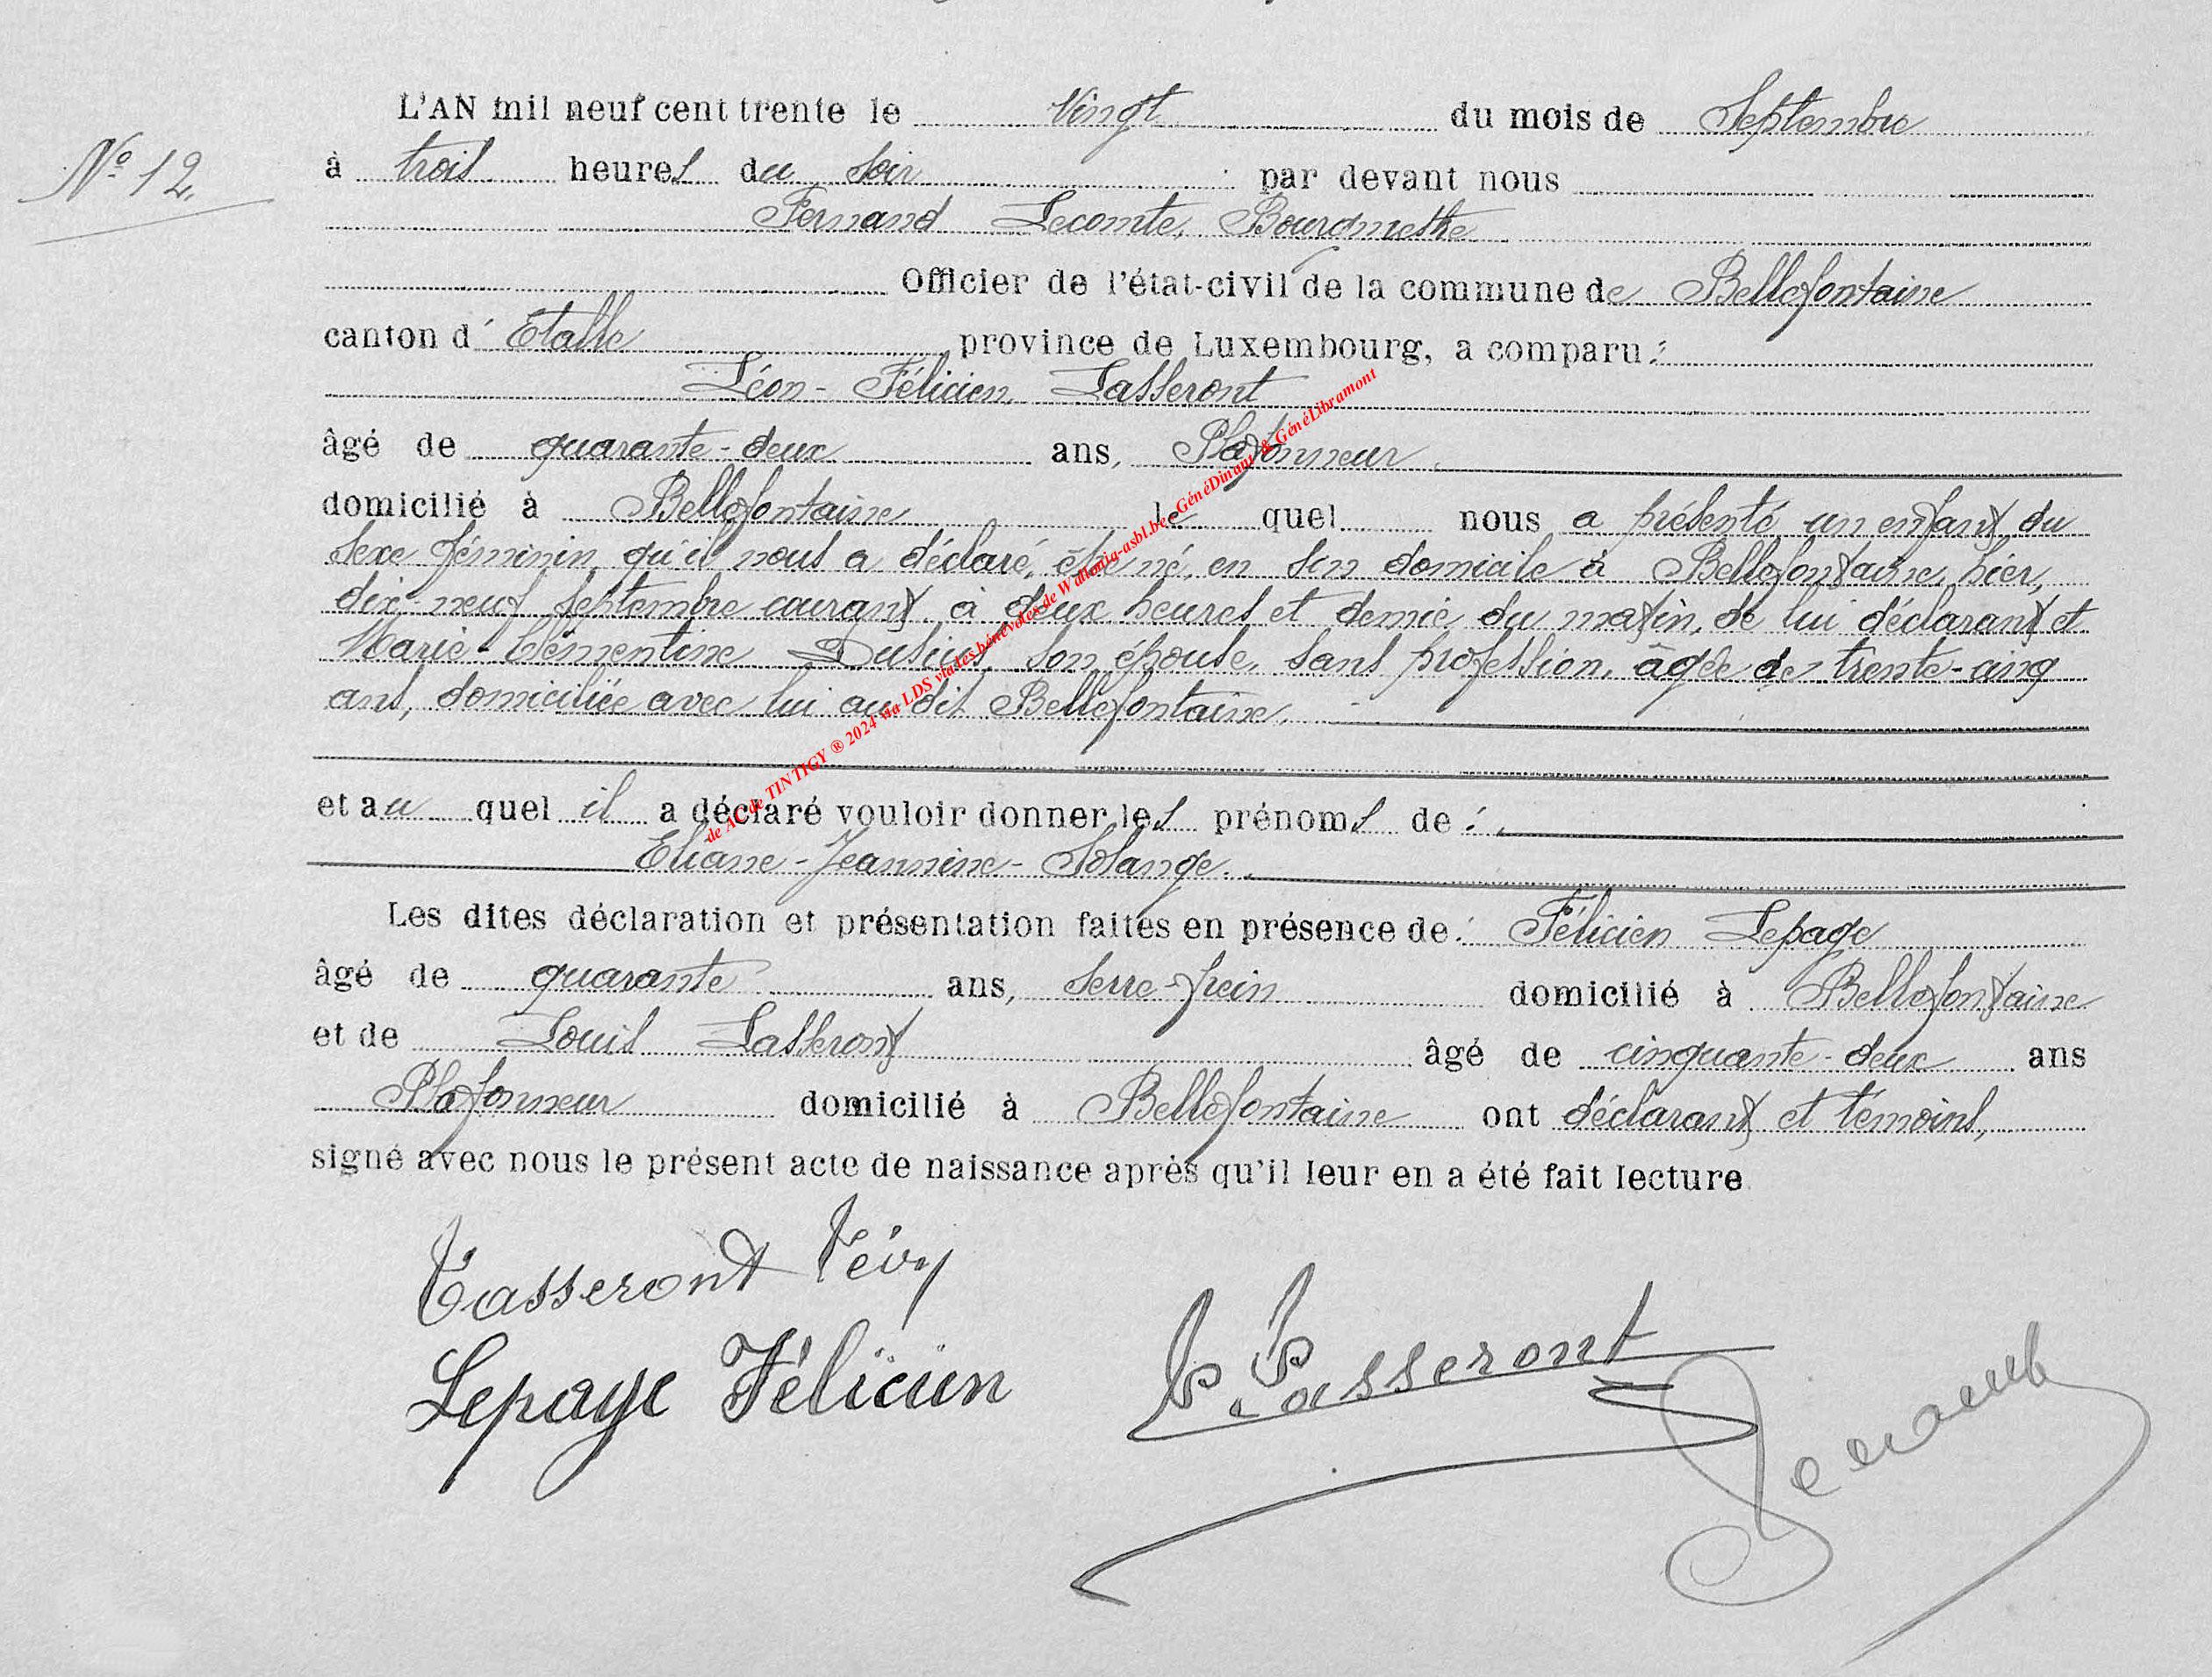 L'AN mil neuf cent trente le Vingt du mois de Septembre
N° 12.
à trois heures du soir par devant nous
Fernand Lecomte, Bourgmestre
Officier de l'état-civil de la commune de Bellefontaine
canton d' Etalle province de Luxembourg, a comparu :
Léon-Félicien Lasseront
âgé de quarante-deux ans, Plafonneur
domicilié à Bellefontaine le quel nous a présenté un enfant du
sexe féminin, qu'il nous a déclaré, être né, en son domicile à Bellefontaine, hier,
dix-neuf septembre courant à deux heures et demie du matin, de lui déclarant et
Marie-Clémentine son épouse, sans profession, âgée de trente-cinq
ans, domiciliée avec lui au dit Bellefontaine.
et au quel il a déclaré vouloir donner les prénoms de :
Eliane-Jeannine-Solange.
Les dites déclaration et présentation faites en présence de : Félicien Lepage
âgé de quarante ans, serre-frein domicilié à Bellefontaine
et de Louis Lasseront âgé de cinquante-deux ans
Plafonneur domicilié à Bellefontaine ont déclarant et témoins,
signé avec nous le présent acte de naissance après qu'il leur en a été fait lecture
Lasseront
Lepage Félicien
L. Lasseront
de AC de TINTIGY ® 2024 via LDS via des bénévoles de Wallonia-asbl.be GénéDinant & GénéLibramont